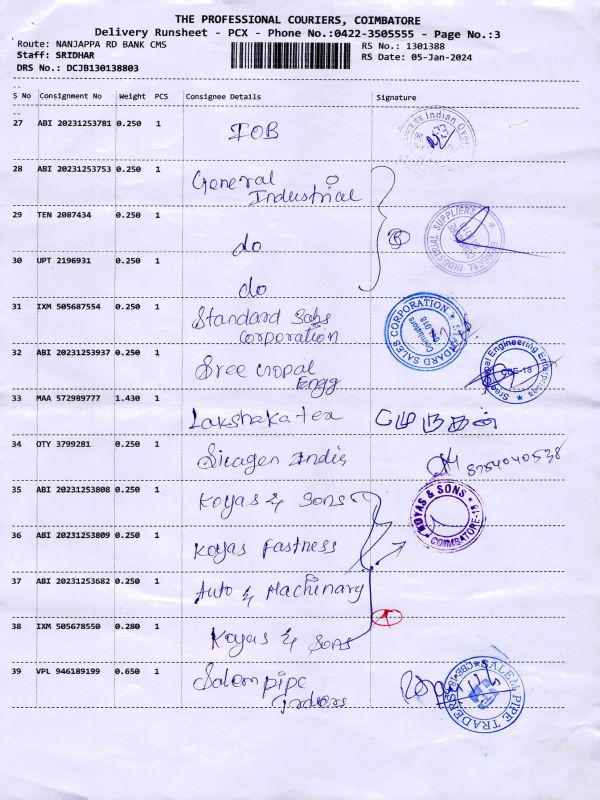 THE PROFESSIONAL COURIERS, COIMBATORE
Delivery Runsheet - PCX - Phone No.:0422-3505555 - Page No.:3
Route: NANJAPPA RD BANK CMS RS No.: 1301388
Staff: SRIDHAR RS Date: 05-Jan-2024
DRS No.: DCJB130138803
S No Consignment No Weight PCS Consignee Details Signature
27 ABI 20231253781 0.250 1 IOB
28 ABI 20231253753 0.250 1 General
Industrial
29 TEN 2087434 0.250 1 do
GENERAL INDUSTRIAL SUPPLIERS
30 UPT 2196931 0.250 1 do
31 IXM 505687554 0.250 1 Standard Sales
Corporation
STANDARD SALES CORPORATION
Coimbatore
32 ABI 20231253937 0.250 1 Sree Gopal
Engg
Sree Gopal Engineering Enterprises
CBE-18
33 MAA 572989777 1.430 1 Lakshaka tex முருகன்
34 OTY 3799281 0.250 1 Sicagen India 8754040538
35 ABI 20231253808 0.250 1 Koyas & Sons
KOYAS & SONS
COIMBATORE-18
36 ABI 20231253809 0.250 1 Koyas Fastness
37 ABI 20231253682 0.250 1 Auto & Machinary
38 IXM 505678550 0.280 1 Koyas & Sons
39 VPL 946189199 0.650 1 Salem pipe
Traders
SALEM PIPE TRADERS
CBE-18